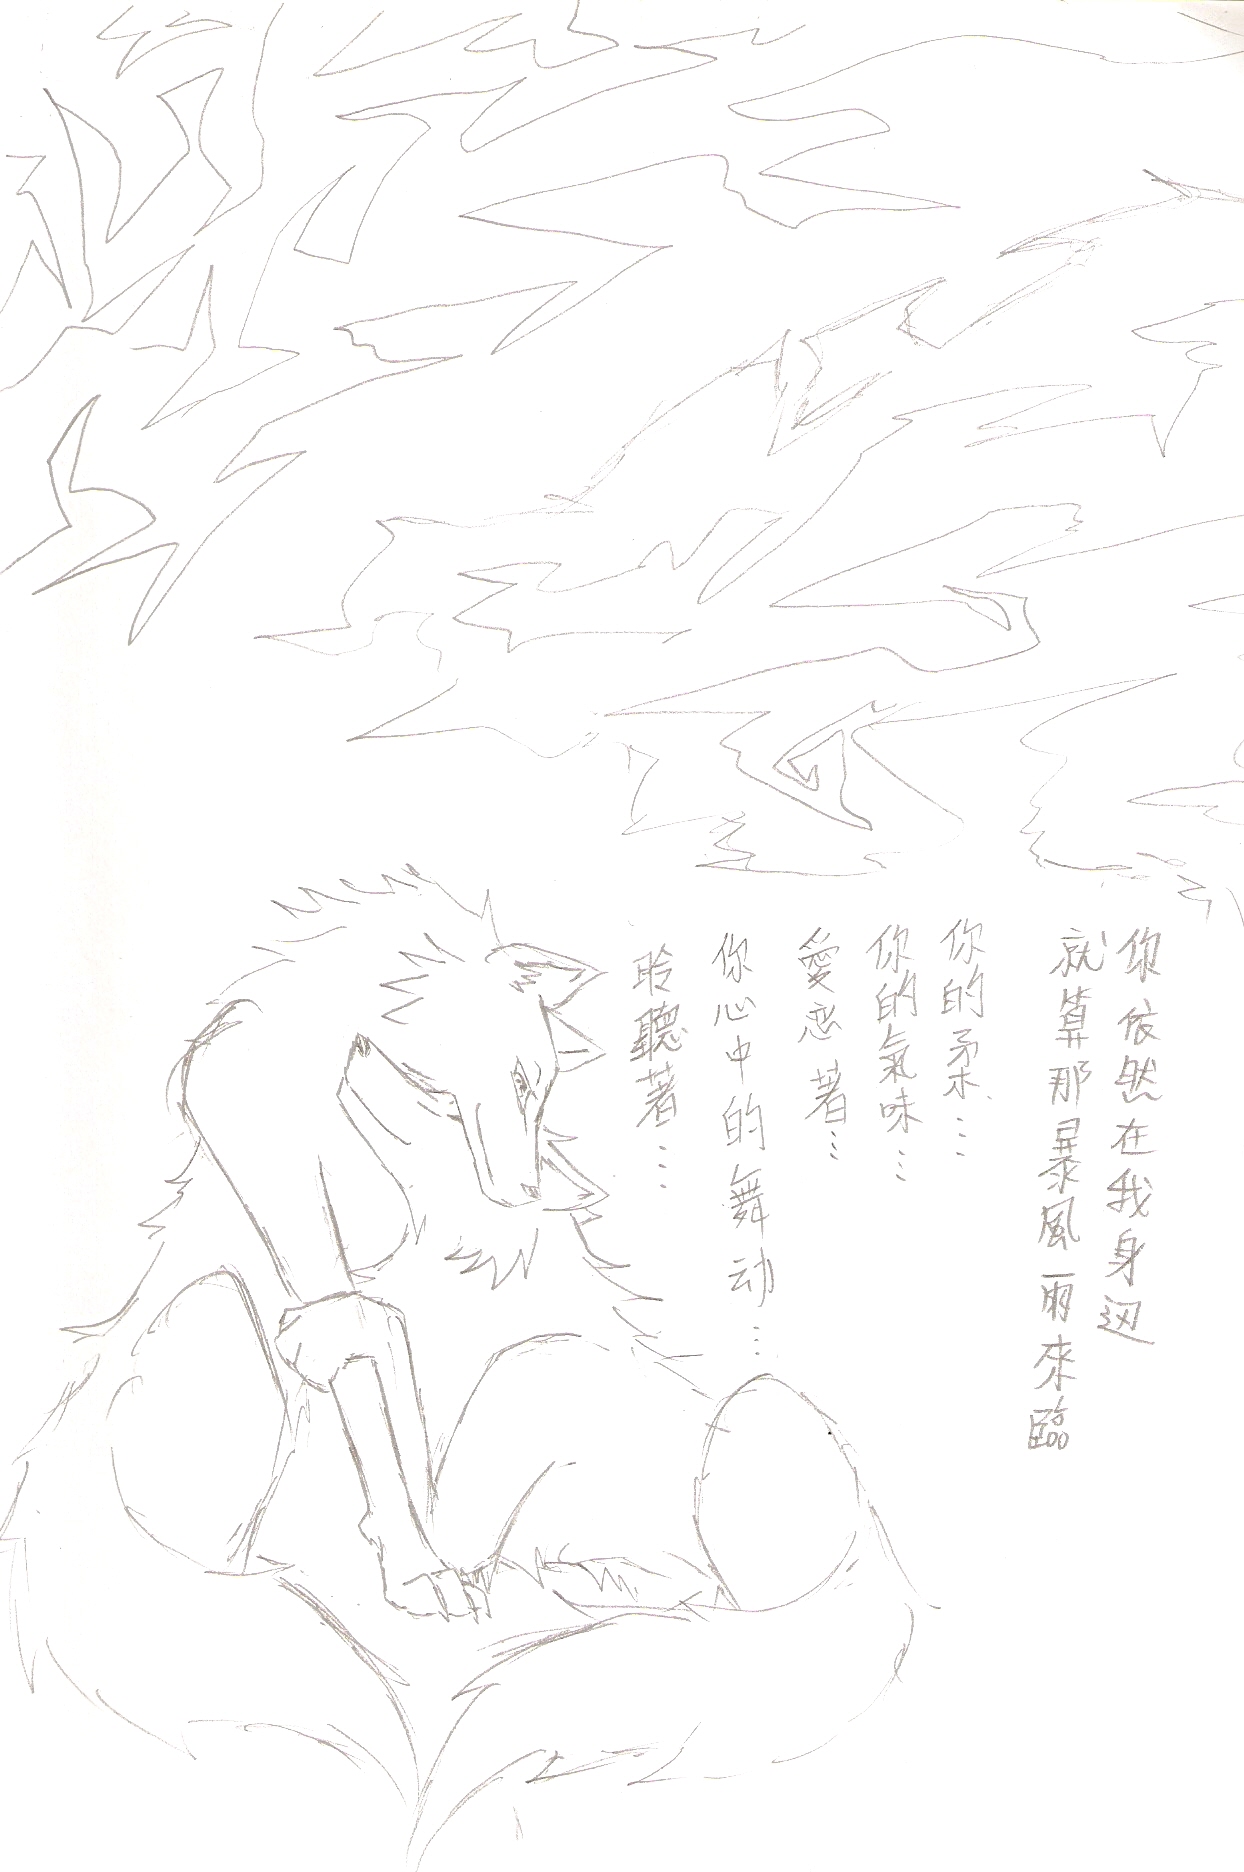 聆聽著…
你心中的舞动…
愛恋著…
你的氣味…
你的柔…
就算那暴風雨來臨
你依然在我身边